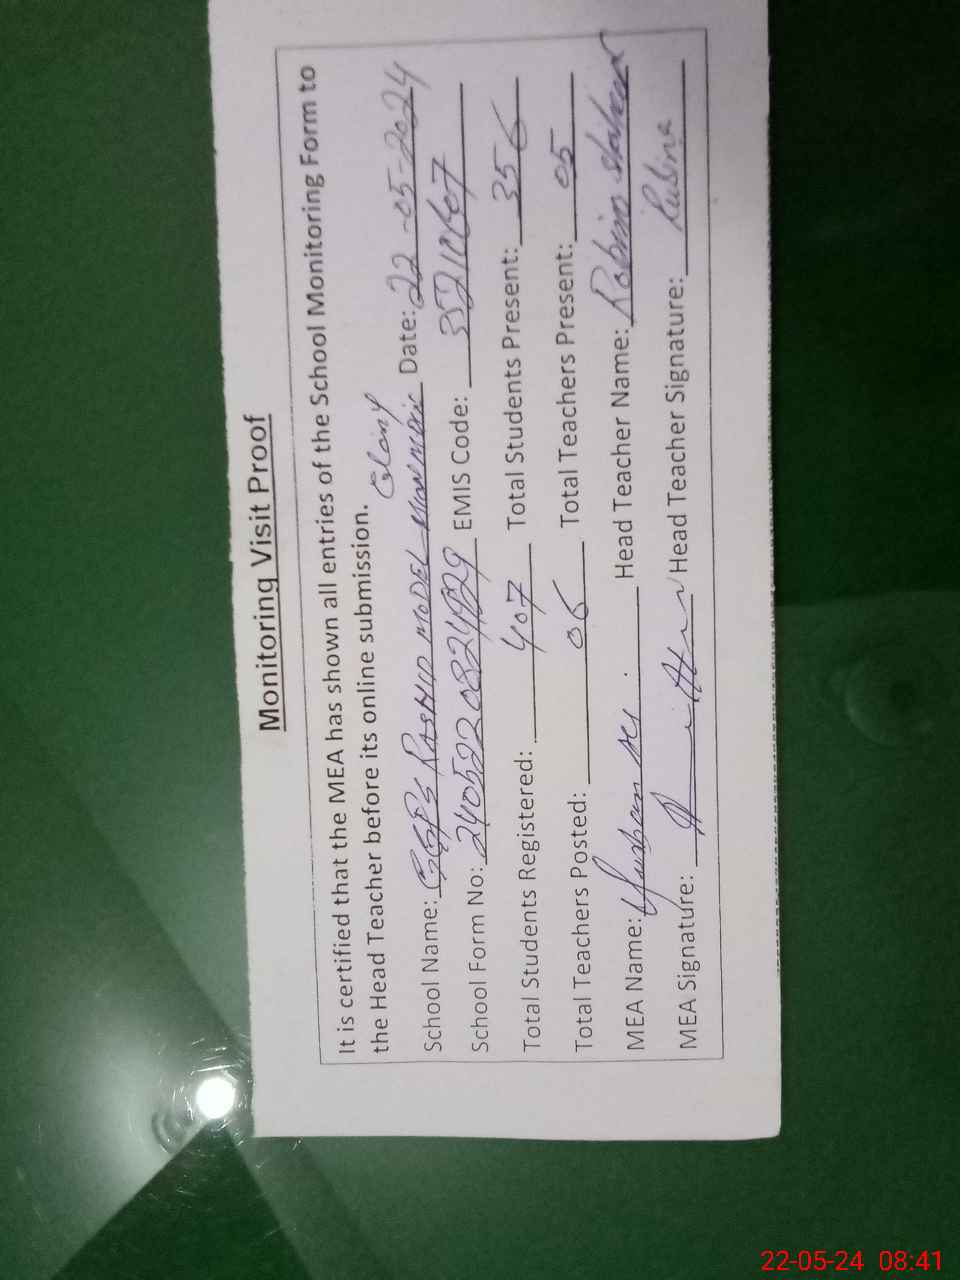 Monitoring Visit Proof
It is certified that the MEA has shown all entries of the School Monitoring Form to
the Head Teacher before its online submission.
School Name: GGPS RASHID MODEL Colony Date: 22-05-2024
School Form No: EMIS Code:
Total Students Registered: 407 Total Students Present: 356
Total Teachers Posted: 06 Total Teachers Present: 05
MEA Name: Head Teacher Name:
MEA Signature: Head Teacher Signature: Rubina
22-05-24 08:41